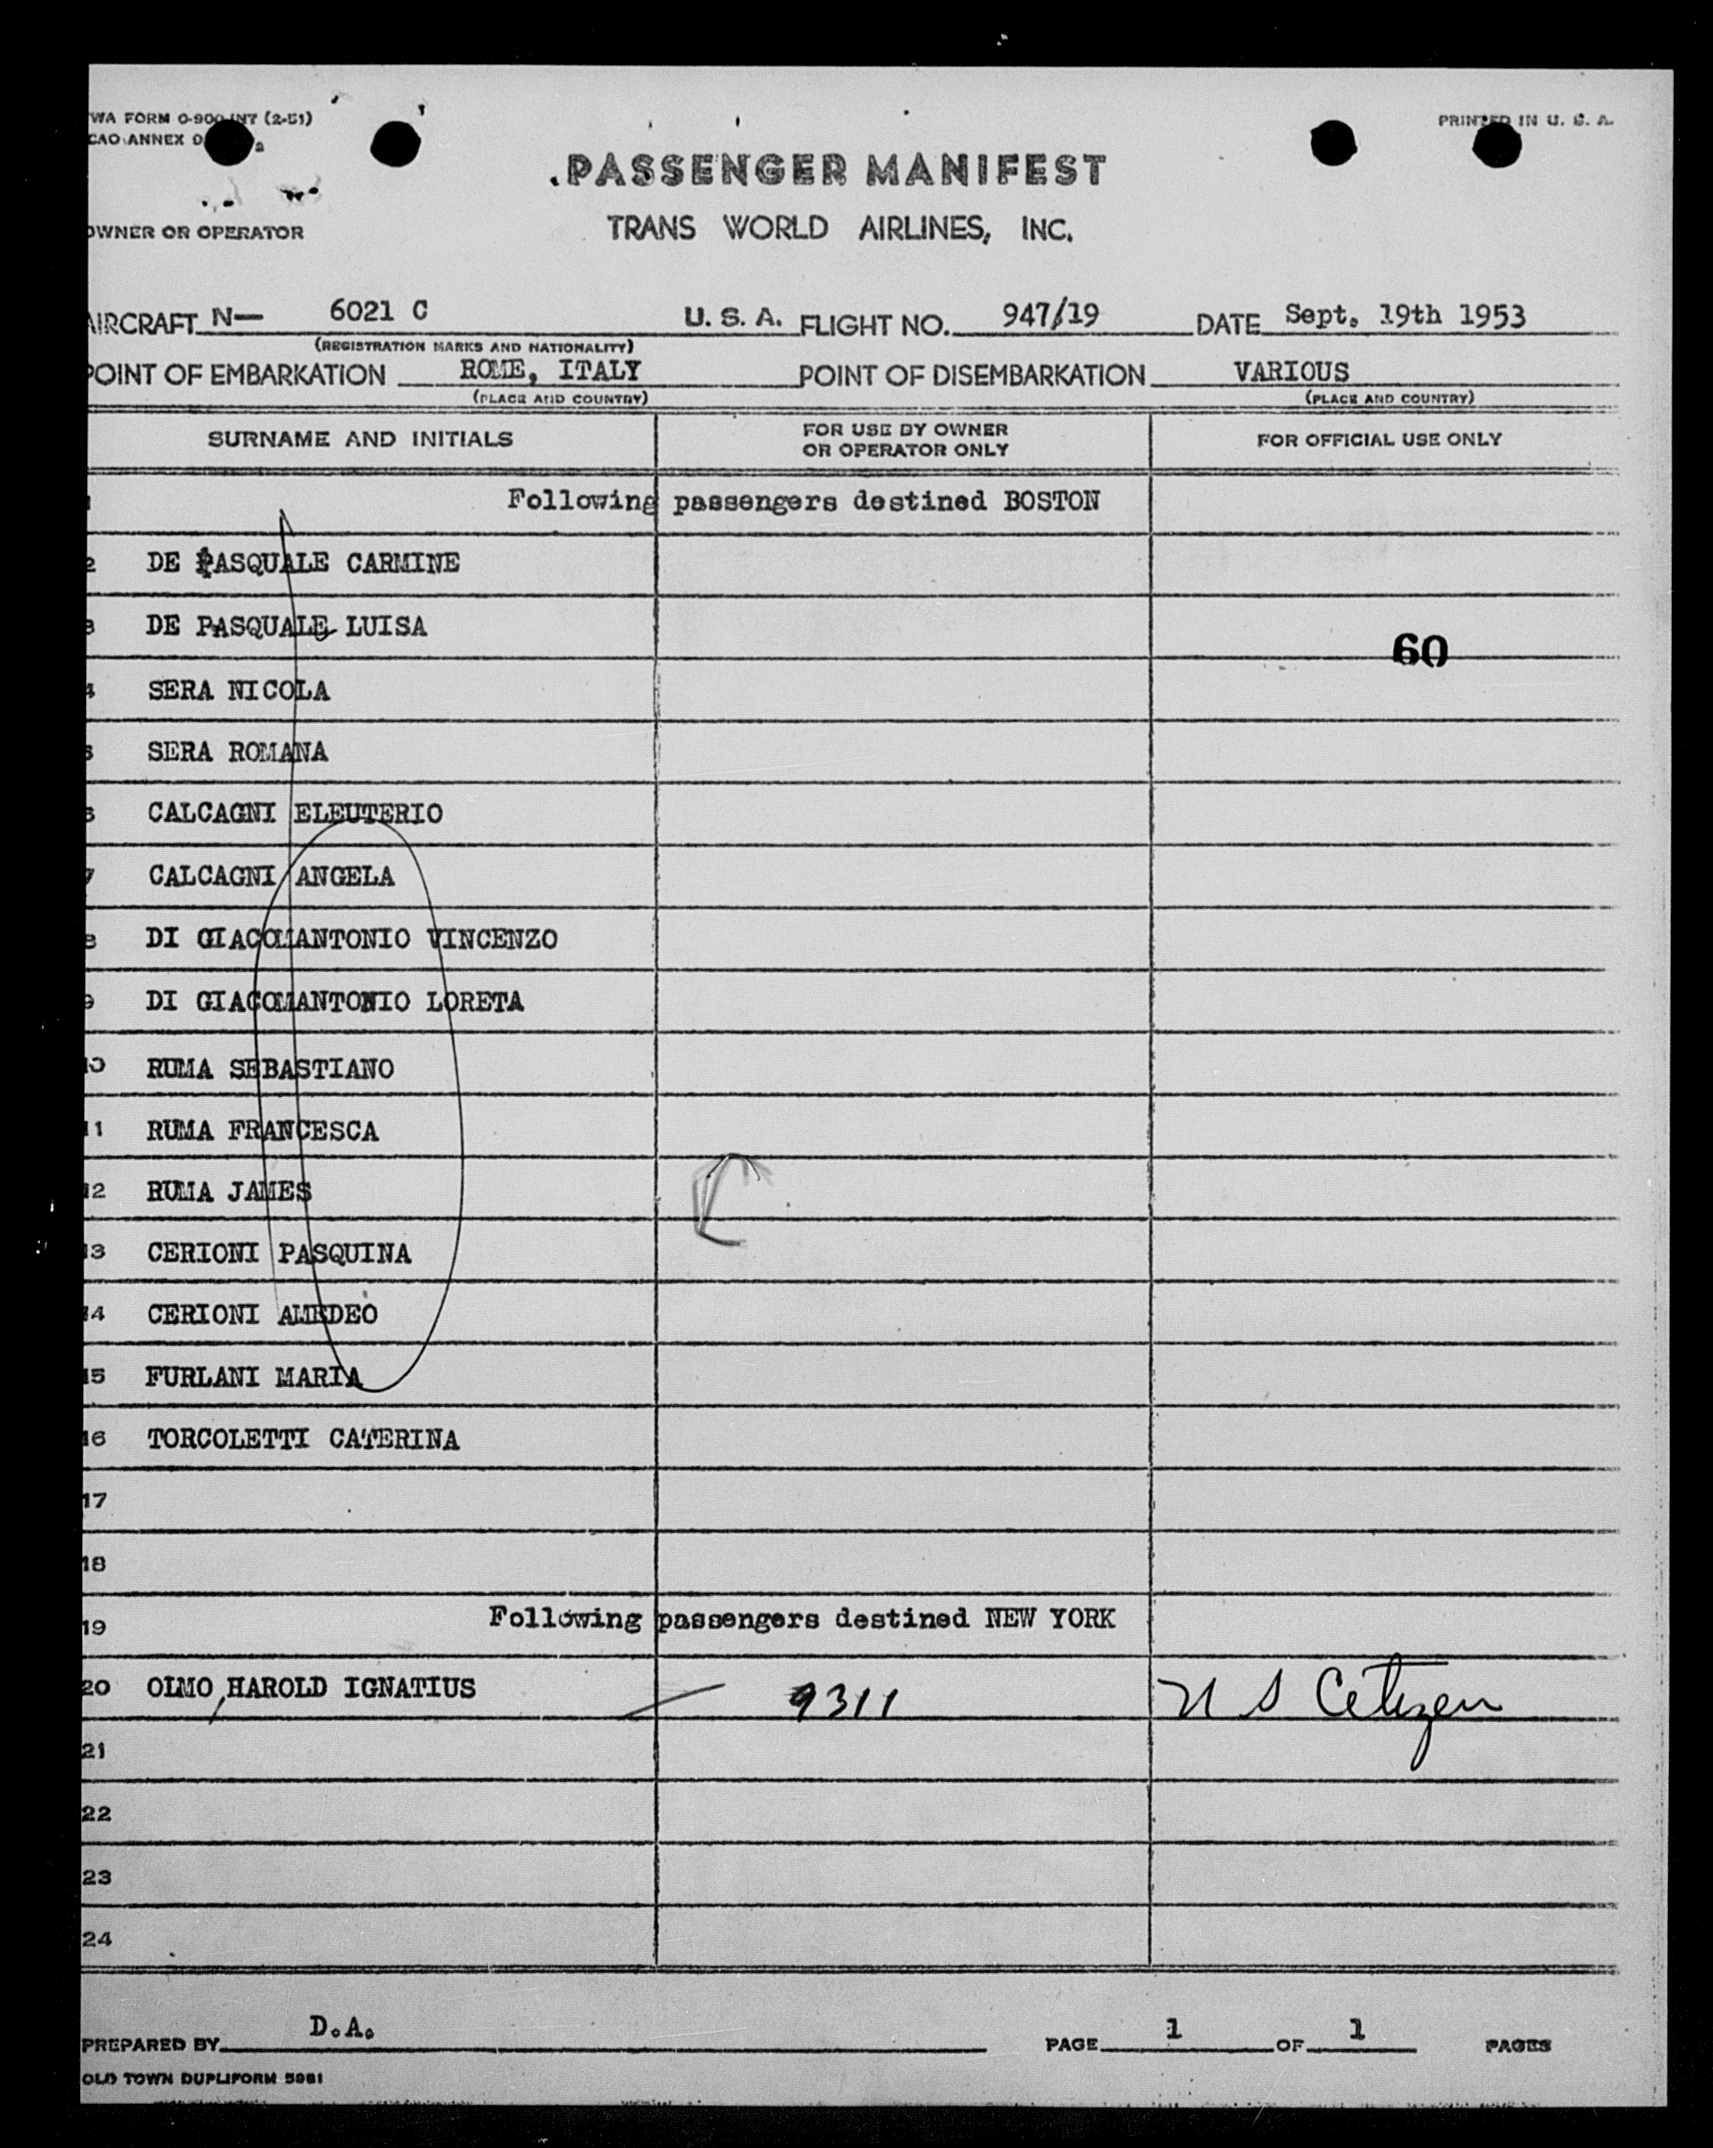 WA FORM O-900-INT (2-51) PRINTED IN U. S. A.
CAO ANNEX
PASSENGER MANIFEST
OWNER OR OPERATOR TRANS WORLD AIRLINES, INC.
AIRCRAFT N— 6021 C U. S. A. FLIGHT NO. 947/19 DATE Sept. 19th 1953
(REGISTRATION MARKS AND NATIONALITY)
POINT OF EMBARKATION ROME, ITALY POINT OF DISEMBARKATION VARIOUS
(PLACE AND COUNTRY) (PLACE AND COUNTRY)
SURNAME AND INITIALS FOR USE BY OWNER OR OPERATOR ONLY FOR OFFICIAL USE ONLY
1 Following passengers destined BOSTON
2 DE PASQUALE CARMINE
3 DE PASQUALE LUISA
60
4 SERA NICOLA
5 SERA ROMANA
6 CALCAGNI ELEUTERIO
7 CALCAGNI ANGELA
8 DI GIACOMANTONIO VINCENZO
9 DI GIACOMANTONIO LORETA
10 RUMA SEBASTIANO
11 RUMA FRANCESCA
12 RUMA JAMES
13 CERIONI PASQUINA
14 CERIONI AMEDEO
15 FURLANI MARIA
16 TORCOLETTI CATERINA
17
18
19 Following passengers destined NEW YORK
20 OLMO, HAROLD IGNATIUS 9311 U S Citizen
21
22
23
24
PREPARED BY D.A. PAGE 1 OF 1 PAGES
OLD TOWN DUPLIFORM 5981